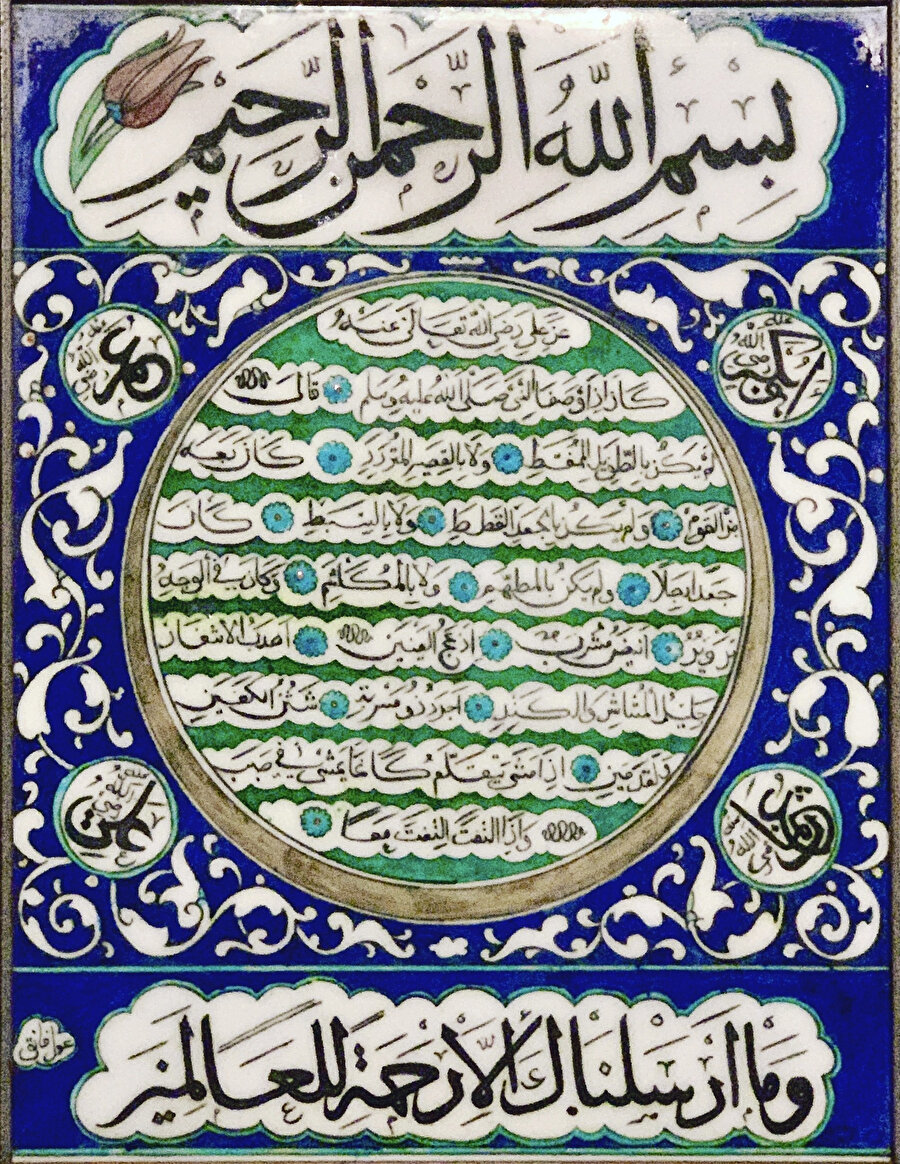 بسم الله الرحمن الرحيم
ابوبكر رضي الله عنه
عمر رضي الله عنه
عن علي رضي الله تعالى عنه
كان اذا وصف النبي صلى الله عليه وسلم قال
لم يكن بالطويل الممغط ولا بالقصير المتردد كان ربعة
من القوم ولم يكن بالجعد القطط ولا بالسبط كان
جعدا رجلا ولم يكن بالمطهم ولا بالمكلثم وكان في الوجه
تدوير ابيض مشرب ادعج العينين اهدب الاشفار
جليل المشاش والكتد اجرد ذو مسربة شثن الكفين
والقدمين اذا مشى يتقلع كانما يمشي في صبب
واذا التفت التفت معا
عثمان رضي الله عنه
علي رضي الله عنه
وما ارسلناك الا رحمة للعالمين